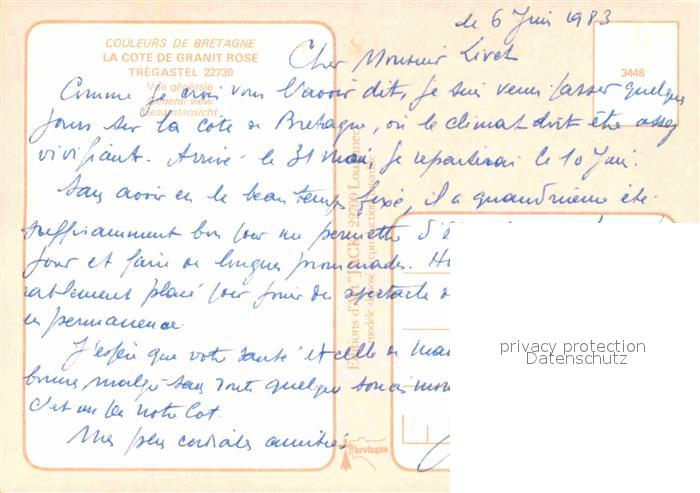 le 6 Juin 1983
COULEURS DE BRETAGNE
LA COTE DE GRANIT ROSE
TRÉGASTEL 22730
Vue générale
General view
Gesamtansicht
3448
Cher Monsieur
Comme je crois vous l'avoir dit, je suis venu passer quelques
jours sur la cote de Bretagne, où le climat doit être assez
vivifiant. Arrivé le 31 mai, je repartirai le 10 Juin.
Sans avoir eu le beau temps fixe, il a quand même été
suffisamment bon pour me permettre d'
jour et faire de longues promenades.
placé pour jouir du spectacle
en permanence.
J'espère que votre santé et celle de
bonnes malgré sans doute quelques soucis
c'est un peu notre lot.
Mes plus cordiales amitiés
Editions d'Art "JACK"
bretagne
privacy protection
Datenschutz